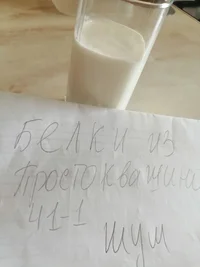 Белки из
Простокващини
41-1
шум